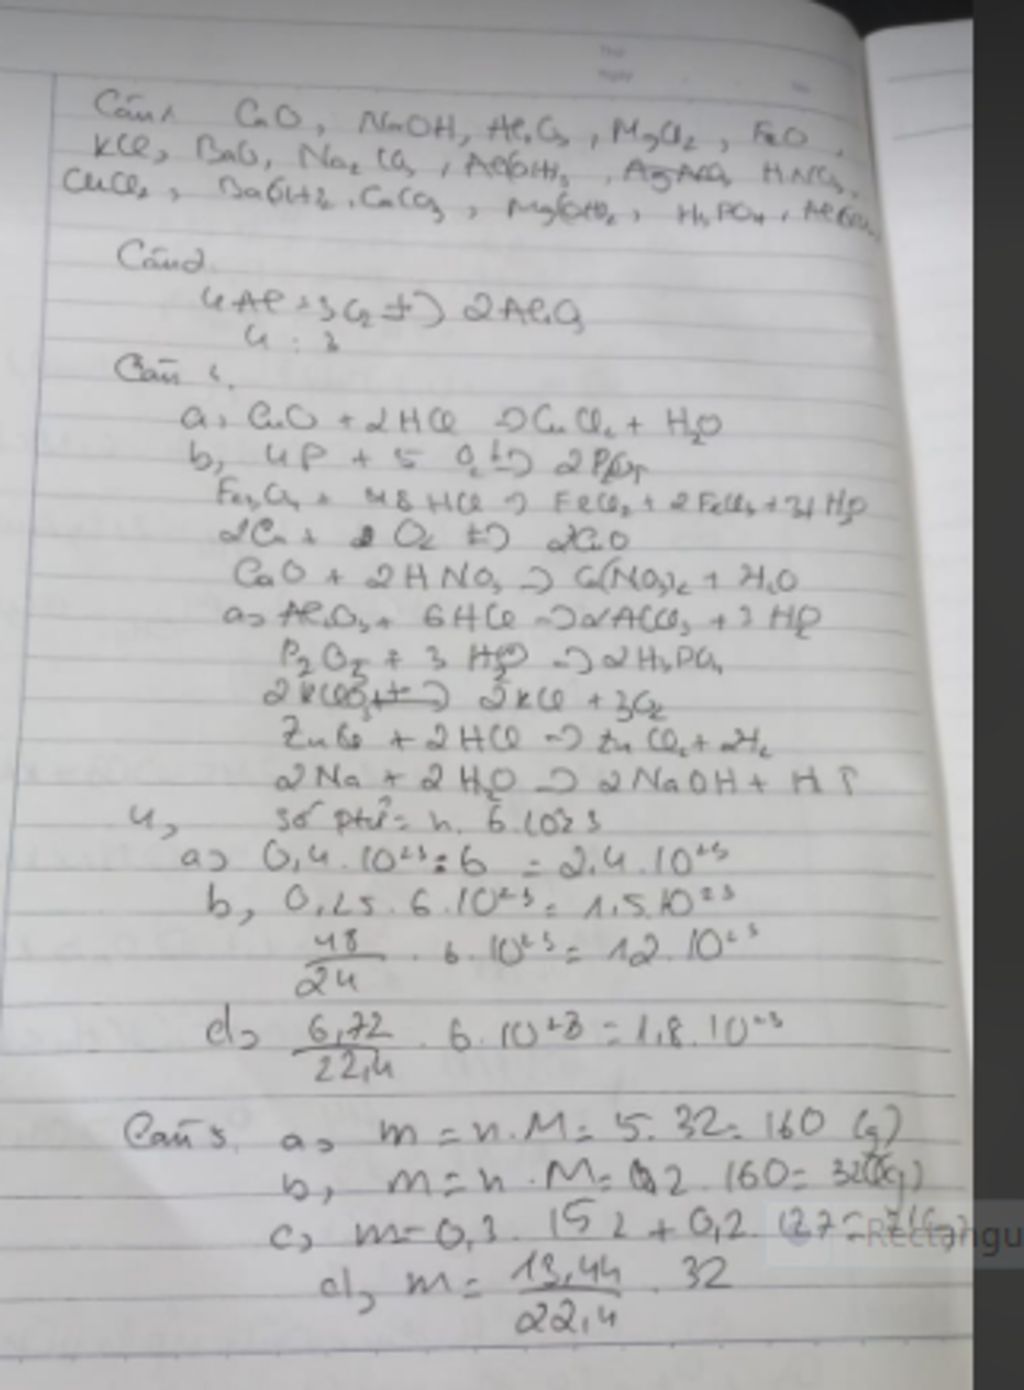 Câu 1 CaO, NaOH, Al2O3, MgCl2, FeO,
KCl, BaO, Na2CO3, Al(OH)3, HNO3,
CuCl2, Ba(OH)2, CaCO3, Mg(OH)2, H3PO4,
Câu 2.
4Al + 3O2 t→ 2Al2O3
4 : 3
Câu
a, CuO + 2HCl → CuCl2 + H2O
b, 4P + 5 O2 t→ 2P2O5
Fe3O4 + 8HCl → FeCl2 + 2FeCl3 + H2O
2Cu + O2 t→ 2CuO
CaO + 2HNO3 → Ca(NO3)2 + H2O
a, Al2O3 + 6HCl → 2AlCl3 + 3 H2O
P2O5 + 3 H2O → 2H3PO4
2KClO3 t→ 2KCl + 3O2
+ 2HCl → ZnCl2 +
2Na + 2H2O → 2NaOH + H
4, số ptử = n. 6.1023
a, 0,4.10²³:6 = 2,4.10²³
b, 0,25.6.10²³ = 1,5.10²³
48/24 . 6.10²³ = 12.10²³
d, 6,72/22,4 . 6.10²³ = 1,8.10²³
Câu 5. a, m = n.M = 5.32 = 160 (g)
b, m = n.M = 0,2.160 = 32(g)
c, m = 0,3.152 + 0,2.127 =
Rectangu
d, m = 13,44/22,4 . 32